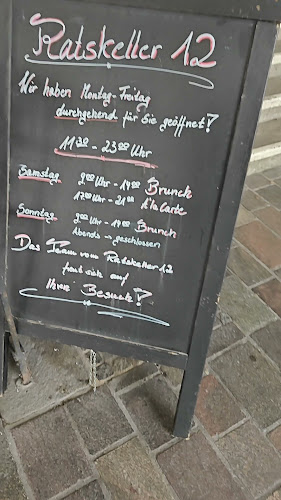 Ratskeller 12
Wir haben Montag-Freitag
durchgehend für Sie geöffnet!
11:30 - 23:00 Uhr
Samstag 9:00 Uhr - 14:00 Brunch
17:00 Uhr - 21:00 A'la Carte
Sonntag 9:00 Uhr - 14:00 Brunch
Abends → geschlossen
Das Team vom Ratskeller 12
freut sich auf
Ihren Besuch!